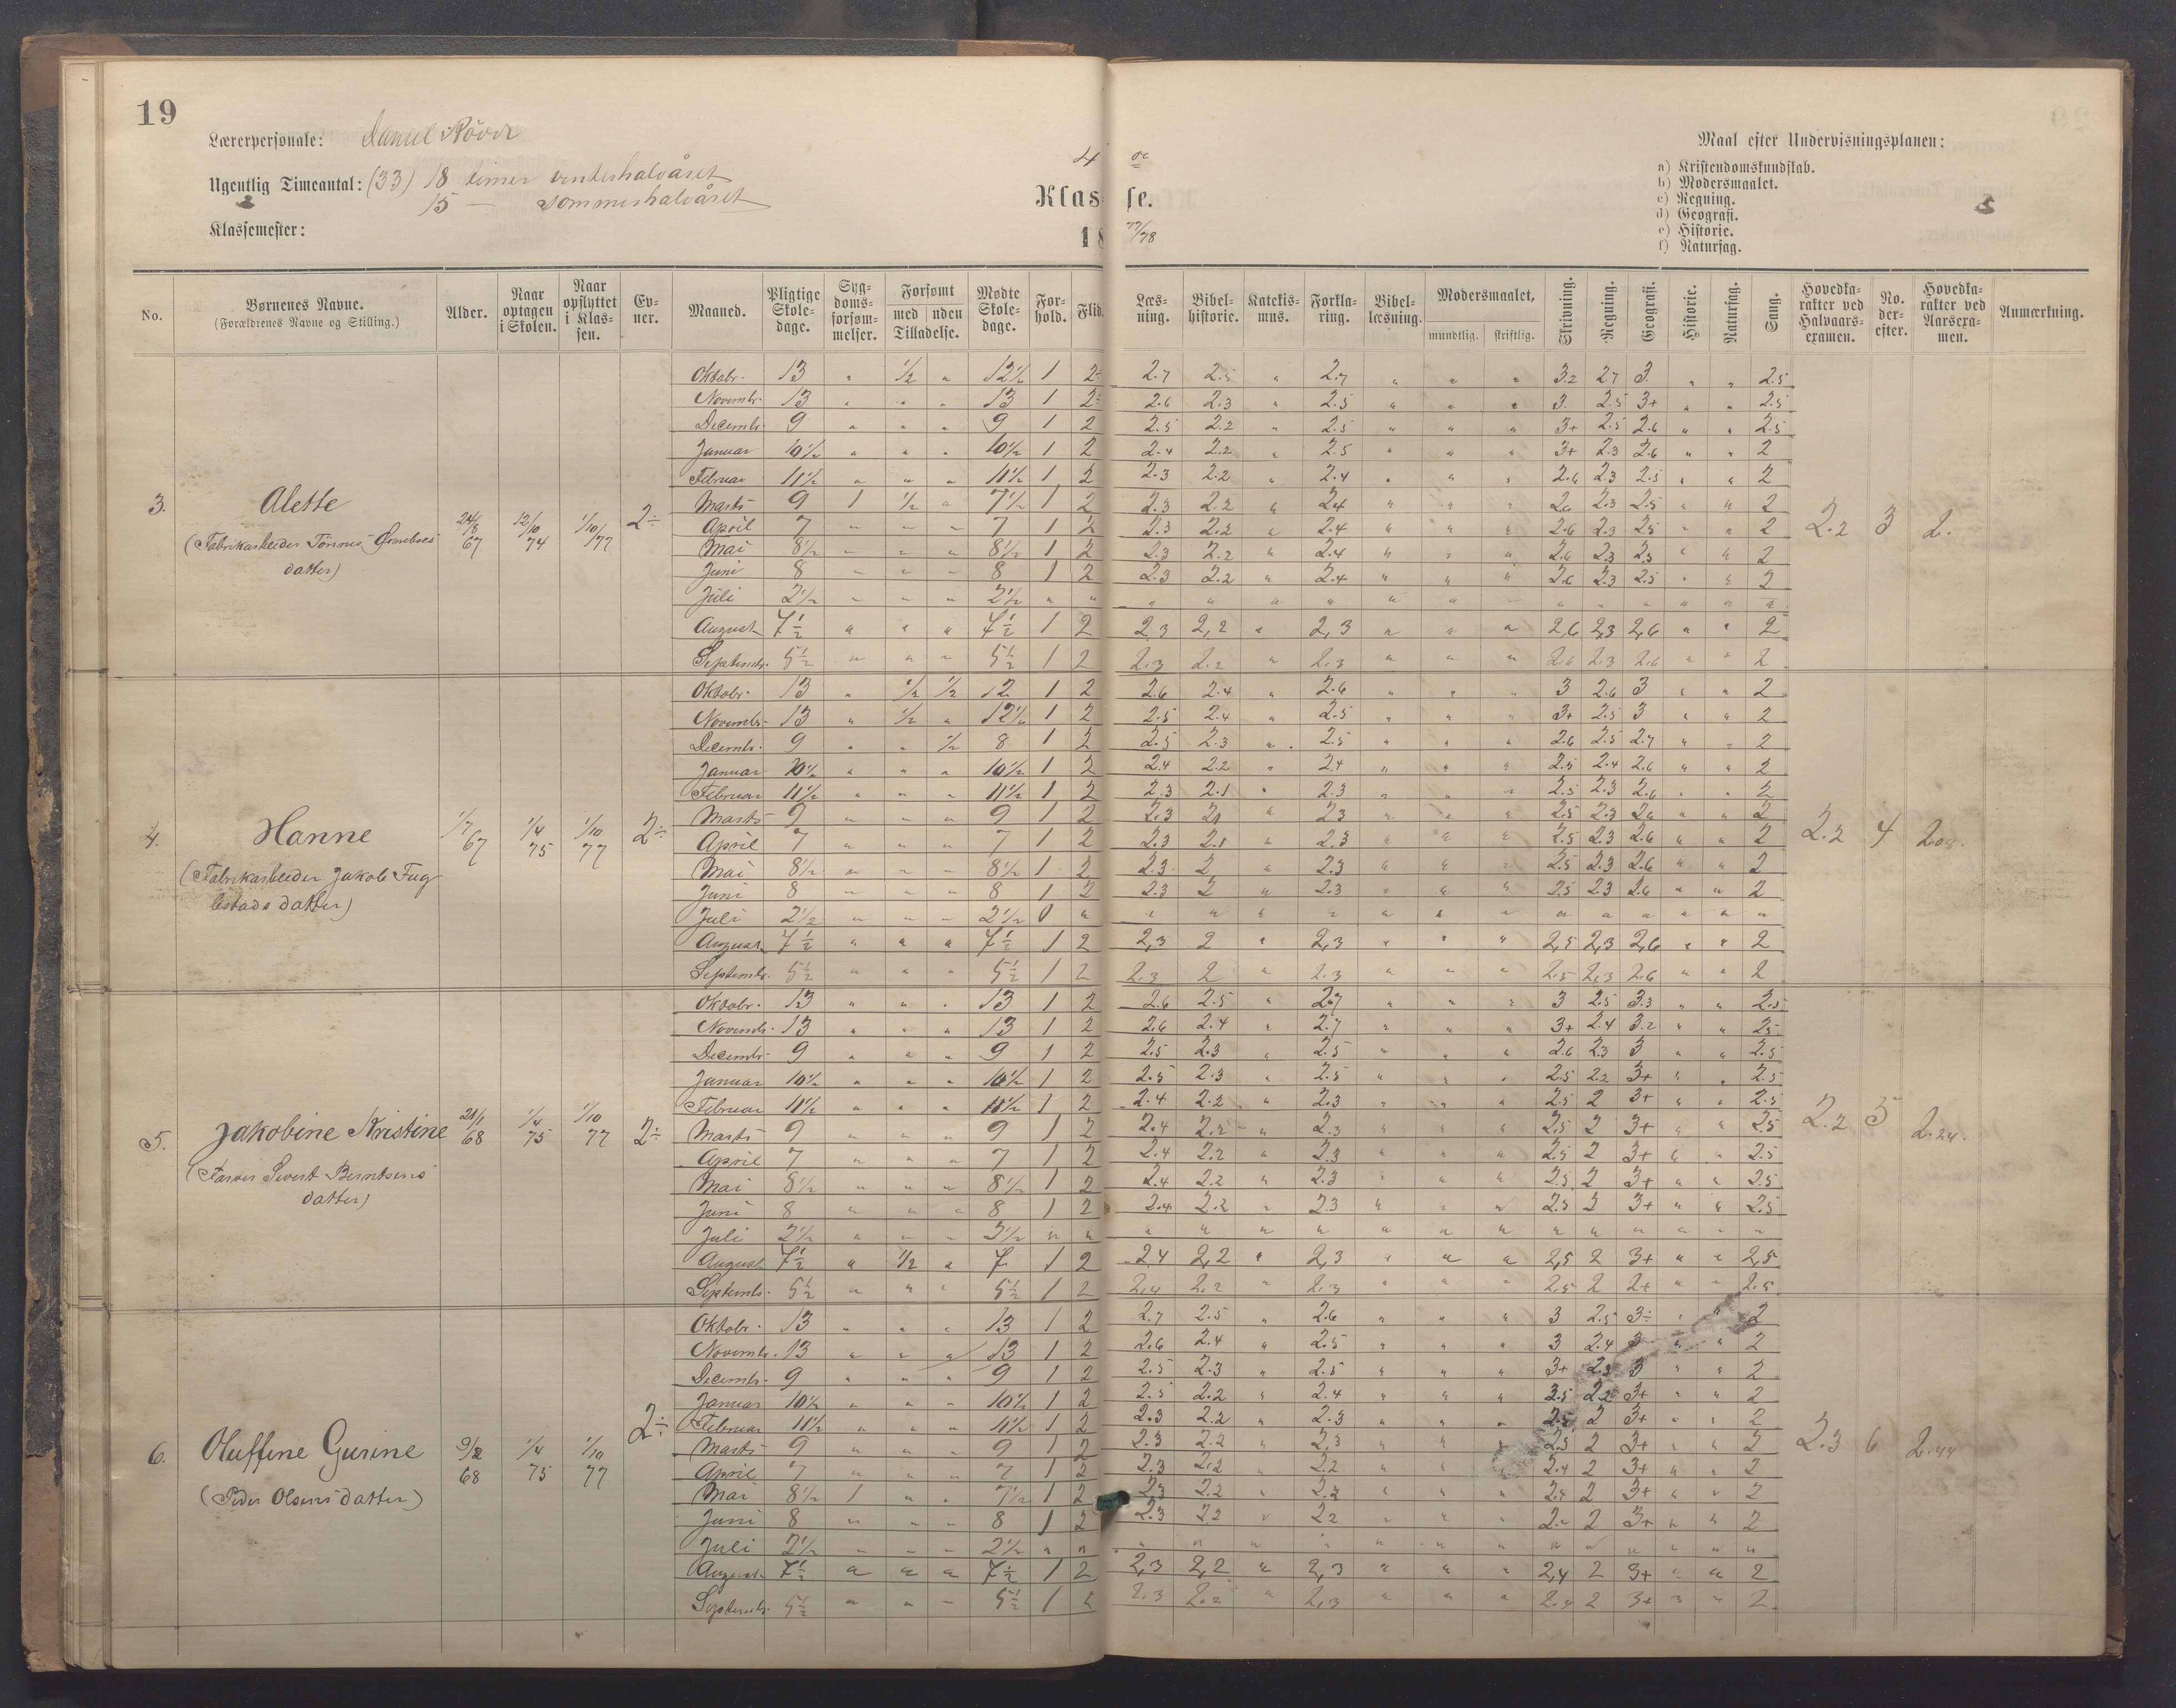 19
Lærerpersonale: Daniel Røver
Ugentlig Timeantal: (33) 18 timer vinterhalvåret
15 — sommerhalvåret
Klassemester:
4 de
Klasse.
18 77/78
Maal efter Undervisningsplanen:
a) Kristendomskundskab.
b) Modersmaalet.
c) Regning.
d) Geografi.
e) Historie.
f) Naturfag.
No. Børnenes Navne. (Forældrenes Navne og Stilling.) Alder. Naar optagen i Skolen. Naar opflyttet i Klassen. Evner. Maaned. Pligtige Skoledage. Sygdomsforsømmelser. Forsømt med uden Tilladelse. Mødte Skoledage. Forhold. Flid. Læsning. Bibelhistorie. Katekismus. Forklaring. Bibellæsning. Modersmaalet, mundtlig. skriftlig. Skrivning. Regning. Geografi. Historie. Naturfag. Sang. Hovedkarakter ved Halvaarsexamen. No. derefter. Hovedkarakter ved Aarsexamen. Anmærkning.
3. Alette
(Fabrikarbeider Tönnes
datter) 24/8 67 12/10 74 1/10 77 2÷ 2.2 3 2.
Oktobr. 13 " 1/2 " 12 1/2 1 2÷ 2.7 2.5 " 2.7 " " " 3.2 2.7 3 " " 2.5
Novembr. 13 " " " 13 1 2÷ 2.6 2.3 " 2.5 " " " 3. 2.5 3+ " " 2.5
Decembr. 9 " " " 9 1 2 2.5 2.2 " 2.5 " " " 3+ 2.5 2.6 " " 2.5
Januar 10 1/2 " " " 10 1/2 1 2 2.4 2.2 " 2.5 " " " 3+ 2.3 2.6 " " 2
Februar 11 1/2 " " " 11 1/2 1 2 2.3 2.2 " 2.4 " " " 2.6 2.3 2.5 " " 2
Marts 9 1 1/2 " 7 1/2 1 2 2.3 2.2 " 2.4 " " " 2.6 2.3 2.5 " " 2
April 7 " " " 7 1 2 2.3 2.2 " 2.4 " " " 2.6 2.3 2.5 " " 2
Mai 8 1/2 " " " 8 1/2 1 2 2.3 2.2 " 2.4 " " " 2.6 2.3 2.5 " " 2
Juni 8 " " " 8 1 2 2.3 2.2 " 2.4 " " " 2.6 2.3 2.5 " " 2
Juli 2 1/2 " " " 2 1/2 " " " " " " " " " " " " " " "
August 7 1/2 " " " 7 1/2 1 2 2,3 2,2 " 2,3 " " " 2,6 2,3 2,6 " " 2
Septembr. 5 1/2 " " " 5 1/2 1 2 2.3 2.2 " 2.3 " " " 2.6 2.3 2.6 " " 2
4. Hanne
(Fabrikarbeider Jakob Fug
lestads datter) 1/7 67 1/4 75 1/10 77 2÷ 2.2 4 2.08.
Oktobr. 13 " 1/2 1/2 12 1 2 2.6 2.4 " 2.6 " " " 3 2.6 3 " " 2
Novembr. 13 " 1/2 " 12 1/2 1 2 2.5 2.4 " 2.5 " " " 3+ 2.5 3 " " 2
Decembr. 9 " " 1/2 8 1 2 2.5 2.3 " 2.5 " " " 2.6 2.5 2.7 " " 2
Januar 10 1/2 " " " 10 1/2 1 2 2.4 2.2 " 2.4 " " " 2.5 2.4 2.6 " " 2
Februar 11 1/2 " " " 11 1/2 1 2 2.3 2.1 " 2.3 " " " 2.5 2.3 2.6 " " 2
Marts 9 " " " 9 1 2 2.3 2.1 " 2.3 " " " 2.5 2.3 2.6 " " 2
April 7 " " " 7 1 2 2.3 2.1 " 2.3 " " " 2.5 2.3 2.6 " " 2
Mai 8 1/2 " " " 8 1/2 1 2 2.3 2 " 2.3 " " " 2.5 2.3 2.6 " " 2
Juni 8 " " " 8 1 2 2.3 2 " 2.3 " " " 2.5 2.3 2.6 " " 2
Juli 2 1/2 " " " 2 1/2 0 " " " " " " " " " " " " " "
August 7 1/2 " " " 7 1/2 1 2 2,3 2 " 2,3 " " " 2,5 2,3 2,6 " " 2
Septembr. 5 1/2 " " " 5 1/2 1 2 2.3 2 " 2.3 " " " 2.5 2.3 2.6 " " 2
5. Jakobine Kristine
(Farver Sivert Berntsens
datter) 21/1 68 1/4 75 1/10 77 2÷ 2.2 5 2.24.
Oktobr. 13 " " " 13 1 2 2.6 2.5 " 2.7 " " " 3 2.5 3.3 " " 2.5
Novembr. 13 " " " 13 1 2 2.6 2.4 " 2.7 " " " 3+ 2.4 3.2 " " 2.5
Decembr. 9 " " " 9 1 2 2.5 2.3 " 2.5 " " " 2.6 2.3 3 " " 2.5
Januar 10 1/2 " " " 10 1/2 1 2 2.5 2.3 " 2.5 " " " 2.5 2.2 3+ " " 2.5
Februar 11 1/2 " " " 11 1/2 1 2 2.4 2.2 " 2.3 " " " 2.5 2 3+ " " 2.5
Marts 9 " " " 9 1 2 2.4 2.2 " 2.3 " " " 2.5 2 3+ " " 2.5
April 7 " " " 7 1 2 2.4 2.2 " 2.3 " " " 2.5 2 3+ " " 2.5
Mai 8 1/2 " " " 8 1/2 1 2 2.4 2.2 " 2.3 " " " 2.5 2 3+ " " 2.5
Juni 8 " " " 8 1 2 2.4 2.2 " 2.3 " " " 2.5 2 3+ " " 2.5
Juli 2 1/2 " " " 2 1/2 " " " " " " " " " " " " " " "
August 7 1/2 " 1/2 " 7 1 2 2,4 2,2 " 2,3 " " " 2,5 2 3+ " " 2,5
Septembr. 5 1/2 " " " 5 1/2 1 2 2.4 2.2 " 2.3 " " " 2.5 2 2+ " " 2.5
6. Oluffine Gurine
(Peder Olsens datter) 9/12 68 1/4 75 1/10 77 2÷ 2.3 6 2.44
Oktobr. 13 " " " 13 1 2 2.7 2.5 " 2.6 " " " 3 2.5 3÷ " " 2
Novembr. 13 " " " 13 1 2 2.6 2.4 " 2.5 " " " 3 2.4 3 " " 2
Decembr. 9 " " " 9 1 2 2.5 2.3 " 2.5 " " " 3+ 2.3 3 " " 2
Januar 10 1/2 " " " 10 1/2 1 2 2.5 2.2 " 2.4 " " " 2.5 2.2 3+ " " 2
Februar 11 1/2 " " " 11 1/2 1 2 2.3 2.2 " 2.3 " " " 2.5 2 3+ " " 2
Marts 9 " " " 9 1 2 2.3 2.2 " 2.3 " " " 2.5 2 3+ " " 2
April 7 " " " 7 1 2 2.3 2.2 " 2.2 " " " 2.4 2 3+ " " 2
Mai 8 1/2 1 " " 7 1/2 1 2 2.3 2.2 " 2.2 " " " 2.4 2 3+ " " 2
Juni 8 " " " 8 1 2 2.3 2.2 " 2.2 " " " 2 3+ " " 2
Juli 2 1/2 " " " 2 1/2 " " " " " " " " " " " " " " "
August 7 1/2 " " " 7 1/2 1 2 2,3 2,2 " 2,3 " " " 2,4 2 3+ " " 2
Septembr. 5 1/2 " " " 5 1/2 1 2 2.3 2.2 " 2.3 " " " 2.4 2 3+ " " 2